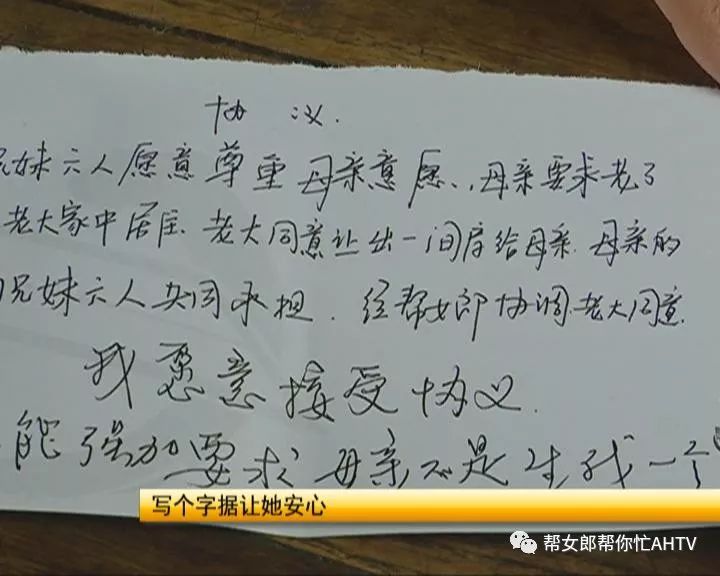 协 议.
兄妹六人愿意尊重母亲意愿.,母亲要求老了
老大家中居住.老大同意让出一间房给母亲.母亲的
兄妹六人共同承担.经帮女郎协调.老大同意.
我愿意接受协义.
能强加要求母亲不是生我一个
写个字据让她安心
帮女郎帮你忙AHTV